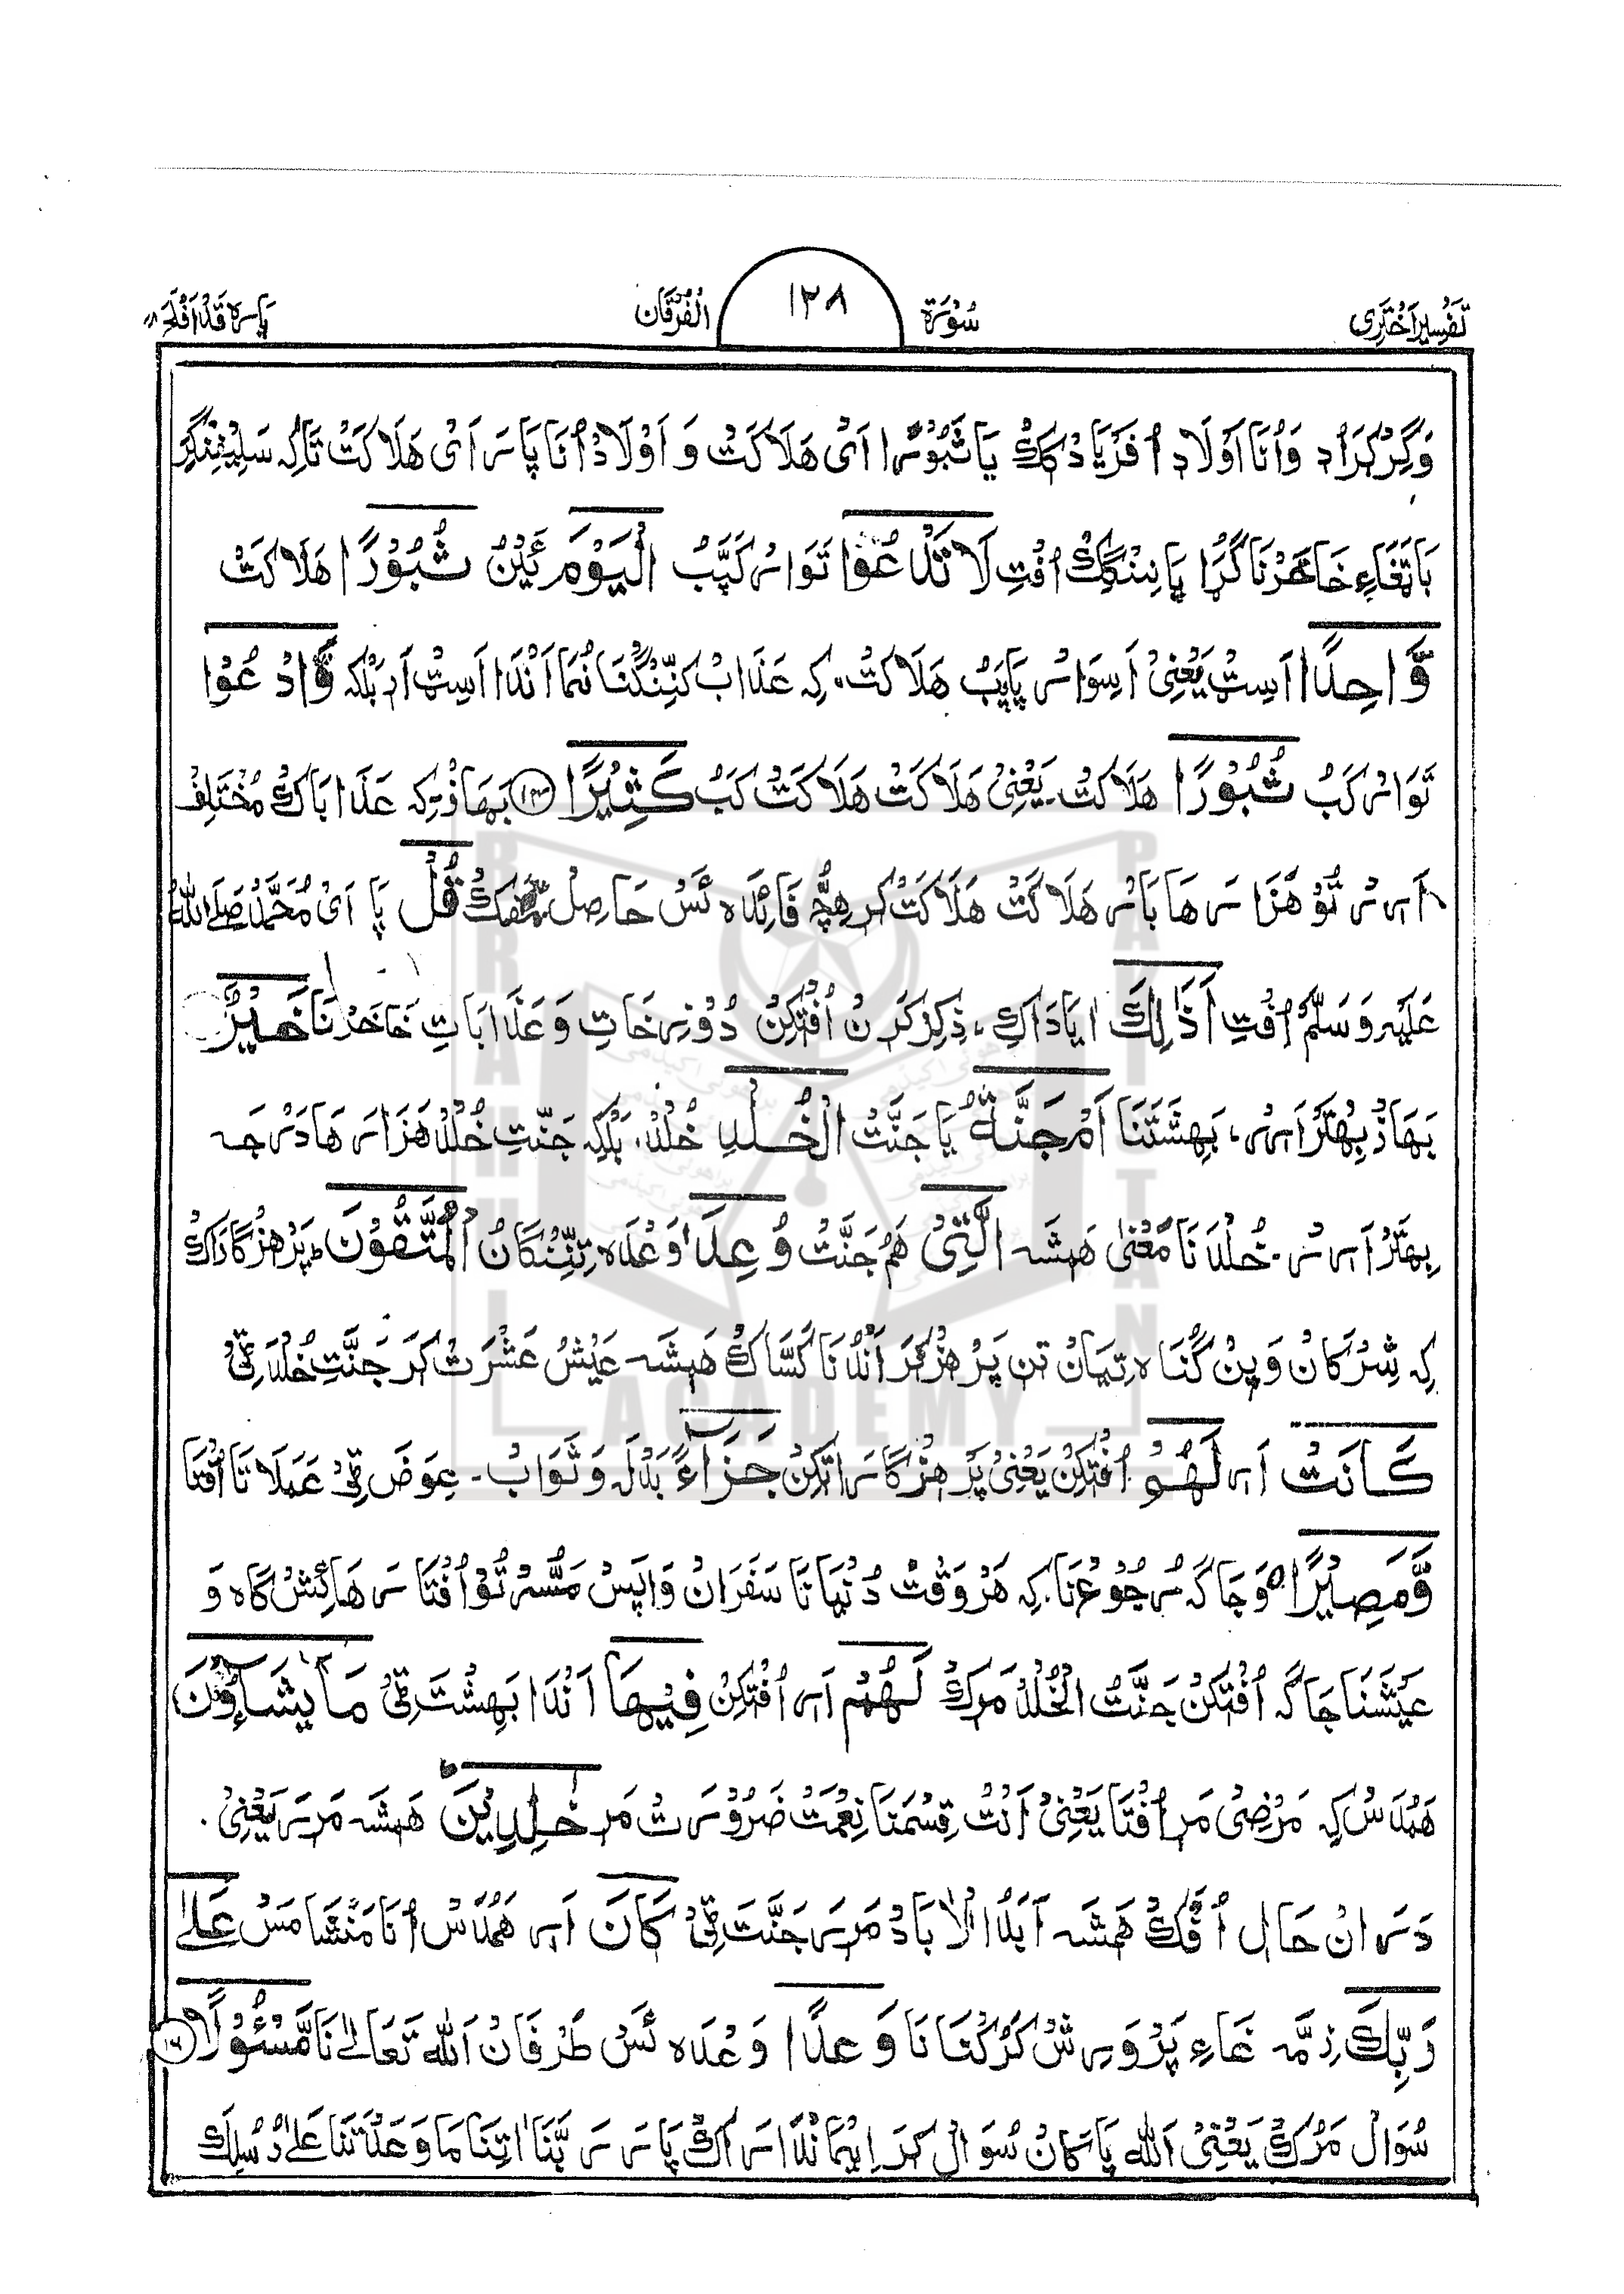 تَفْسِیْراَخْتَرِی سُوْرَة ١٢٨ الْفُرْقَان پَارہ قَدْاَفْلَحَ ١٨
وَگِرکَرَاد وَاُنَا اَوْلَاد اُفَرْیَادْکَك یَا ثُبُوْرًا اَیْ هَلَاکَتْ وَ اَوْلَادْ اُنَا پَارَ اَیْ هَلَاکَتْ تَاکِہ سَلِیْنِنْگِرَ
بَاتَغَاءِ خَاخَرْنَا گُرَا پَانِنْگِكْ اُفْتِ لَا تَدْعُوْا تَوَارْکَپَّبُ الْیَوْمَ ئَیْنْ ثُبُوْرًا هَلَاکَتْ
وَّاحِدًا اَسِتْ یَعْنِیْ اَسِوَارْ پَاپَبُ هَلَاکَتْ، کِہ عَذَابْ کَنِّنْگْنَا نُمَا اَنْدَا اَسِتْ اَرْ بَلْکِہ وَّادْعُوْا
تَوَارْکَبُ ثُبُوْرًا هَلَاکَتْ۔ یَعْنِیْ هَلَاکَتْ هَلَاکَتْ کَبُ کَثِیْرًا ١٤ بَهَاذْ، کِہ عَذَابَاكْ مُخْتَلِفْ
اَرِرْ تُوْ هَزَارَهَا بَارْ هَلَاکَتْ هَلَاکَتْ کَرِ هِچّْ فَائِدَہ ئَسْ حَاصِلْ مَفَكْ قُلْ پَا اَیْ مُحَمَّدْ صَلَّی اللّٰهُ
عَلَیْہِ وَسَلَّمْ اُفْتِ اَذٰلِكَ اٰیَادَاكِ، ذِکِرْکَرُنْ اُفْتِکِنْ دُوْزِخَاتِ وَعَذَابَاتِ خَاخَرْنَا خَیْرٌ
بَهَاذْ بِهْتَرْ اَرِرْ، بَهِشْتَنَا اَمْ جَنَّةُ یَا جَنَّتْ الْخُلْدِ خُلْدْ، بَلْکِہ جَنَّتِ خُلْدْ هَزَارَهَادَرْجَہ
بِهْتَرْ اَرِرْ۔ خُلْدَنَا مَعْنٰی هَمِشَہ الَّتِیْ هَمْ جَنَّتْ وُعِدَ وَعْدَہ تِنِّنْگَانُ الْمُتَّقُوْنَ پَرْهِزْگَارَاكْ
کِہ شِرْکَانْ وَپِنْ گُنَاہ تِیَانْ تِن پَرْهِزْکَرَ اَنْدُنَا کَسَّاكْ هَمِشَہ عَیْش عَشْرَتْ کَرَ جَنَّتِ خُلْدَ ٹِیْ
کَانَتْ اَرِ لَهُمْ اُفْتِکِنْ یَعْنِیْ پَرْهِزْگَارَاتِکِنْ جَزَآءً بَدْلَہ وَثَوَابْ۔ عِوَضْ ٹِیْ عَمَلَاتَا اُفْتَا
وَّمَصِیْرًا وَجَاگَہ رُجُوْعْنَا، کِہ هَرْوَقْتْ دُنْیَانَا سَفَرَانْ وَاپَسْ مَسُّرْ تُوْ اُفْتَا رَهَائِشْ گَاہ وَ
عَیْشْنَا جَاگَہ اُفْتِکِنْ جَنَّتْ الْخُلْدْ مَرَكْ لَهُمْ اَرِ اُفْتِکِنْ فِیْهَا اَنْدَا بَهِشْتَ ٹِیْ مَا یَشَآءُوْنَ
هَمُدَاسْ کِہ مَرْضِیْ مَرِ اُفْتَا یَعْنِیْ اَنْتْ قِسْمَنَا نِعْمَتْ ضَرُوْرَتْ مَرِ خٰلِدِیْنَ هَمِشَہ مَرِرَ یَعْنِیْ
دَرَانْ حَالِ اُفْكْ هَمِشَہ اَبَدُ الْاٰبَادْ مَرِرَ جَنَّتَ ٹِیْ کَانَ اَرِ هَمُدَاسْ اُنَا مَنْشَا مَسْ عَلٰی
رَبِّكَ ذِمَّہ غَاءِ پَرْوَرِشْ کَرُکُنَا نَا وَعْدًا وَعْدَہ ئَسْ طَرْفَانْ اَللّٰهْ تَعَالٰی نَا مَّسْئُوْلًا ١٦
سُوَالْ مَرُكْ یَعْنِیْ اَللّٰهْ پَاكَانْ سُوَالْ کَرَ اِیْمَانْدَارَاكْ پَارَرَ رَبَّنَا اٰتِنَا مَا وَعَدْتَنَا عَلٰی رُسُلِكَ
BRAHUI
ACADEMY
PAKISTAN